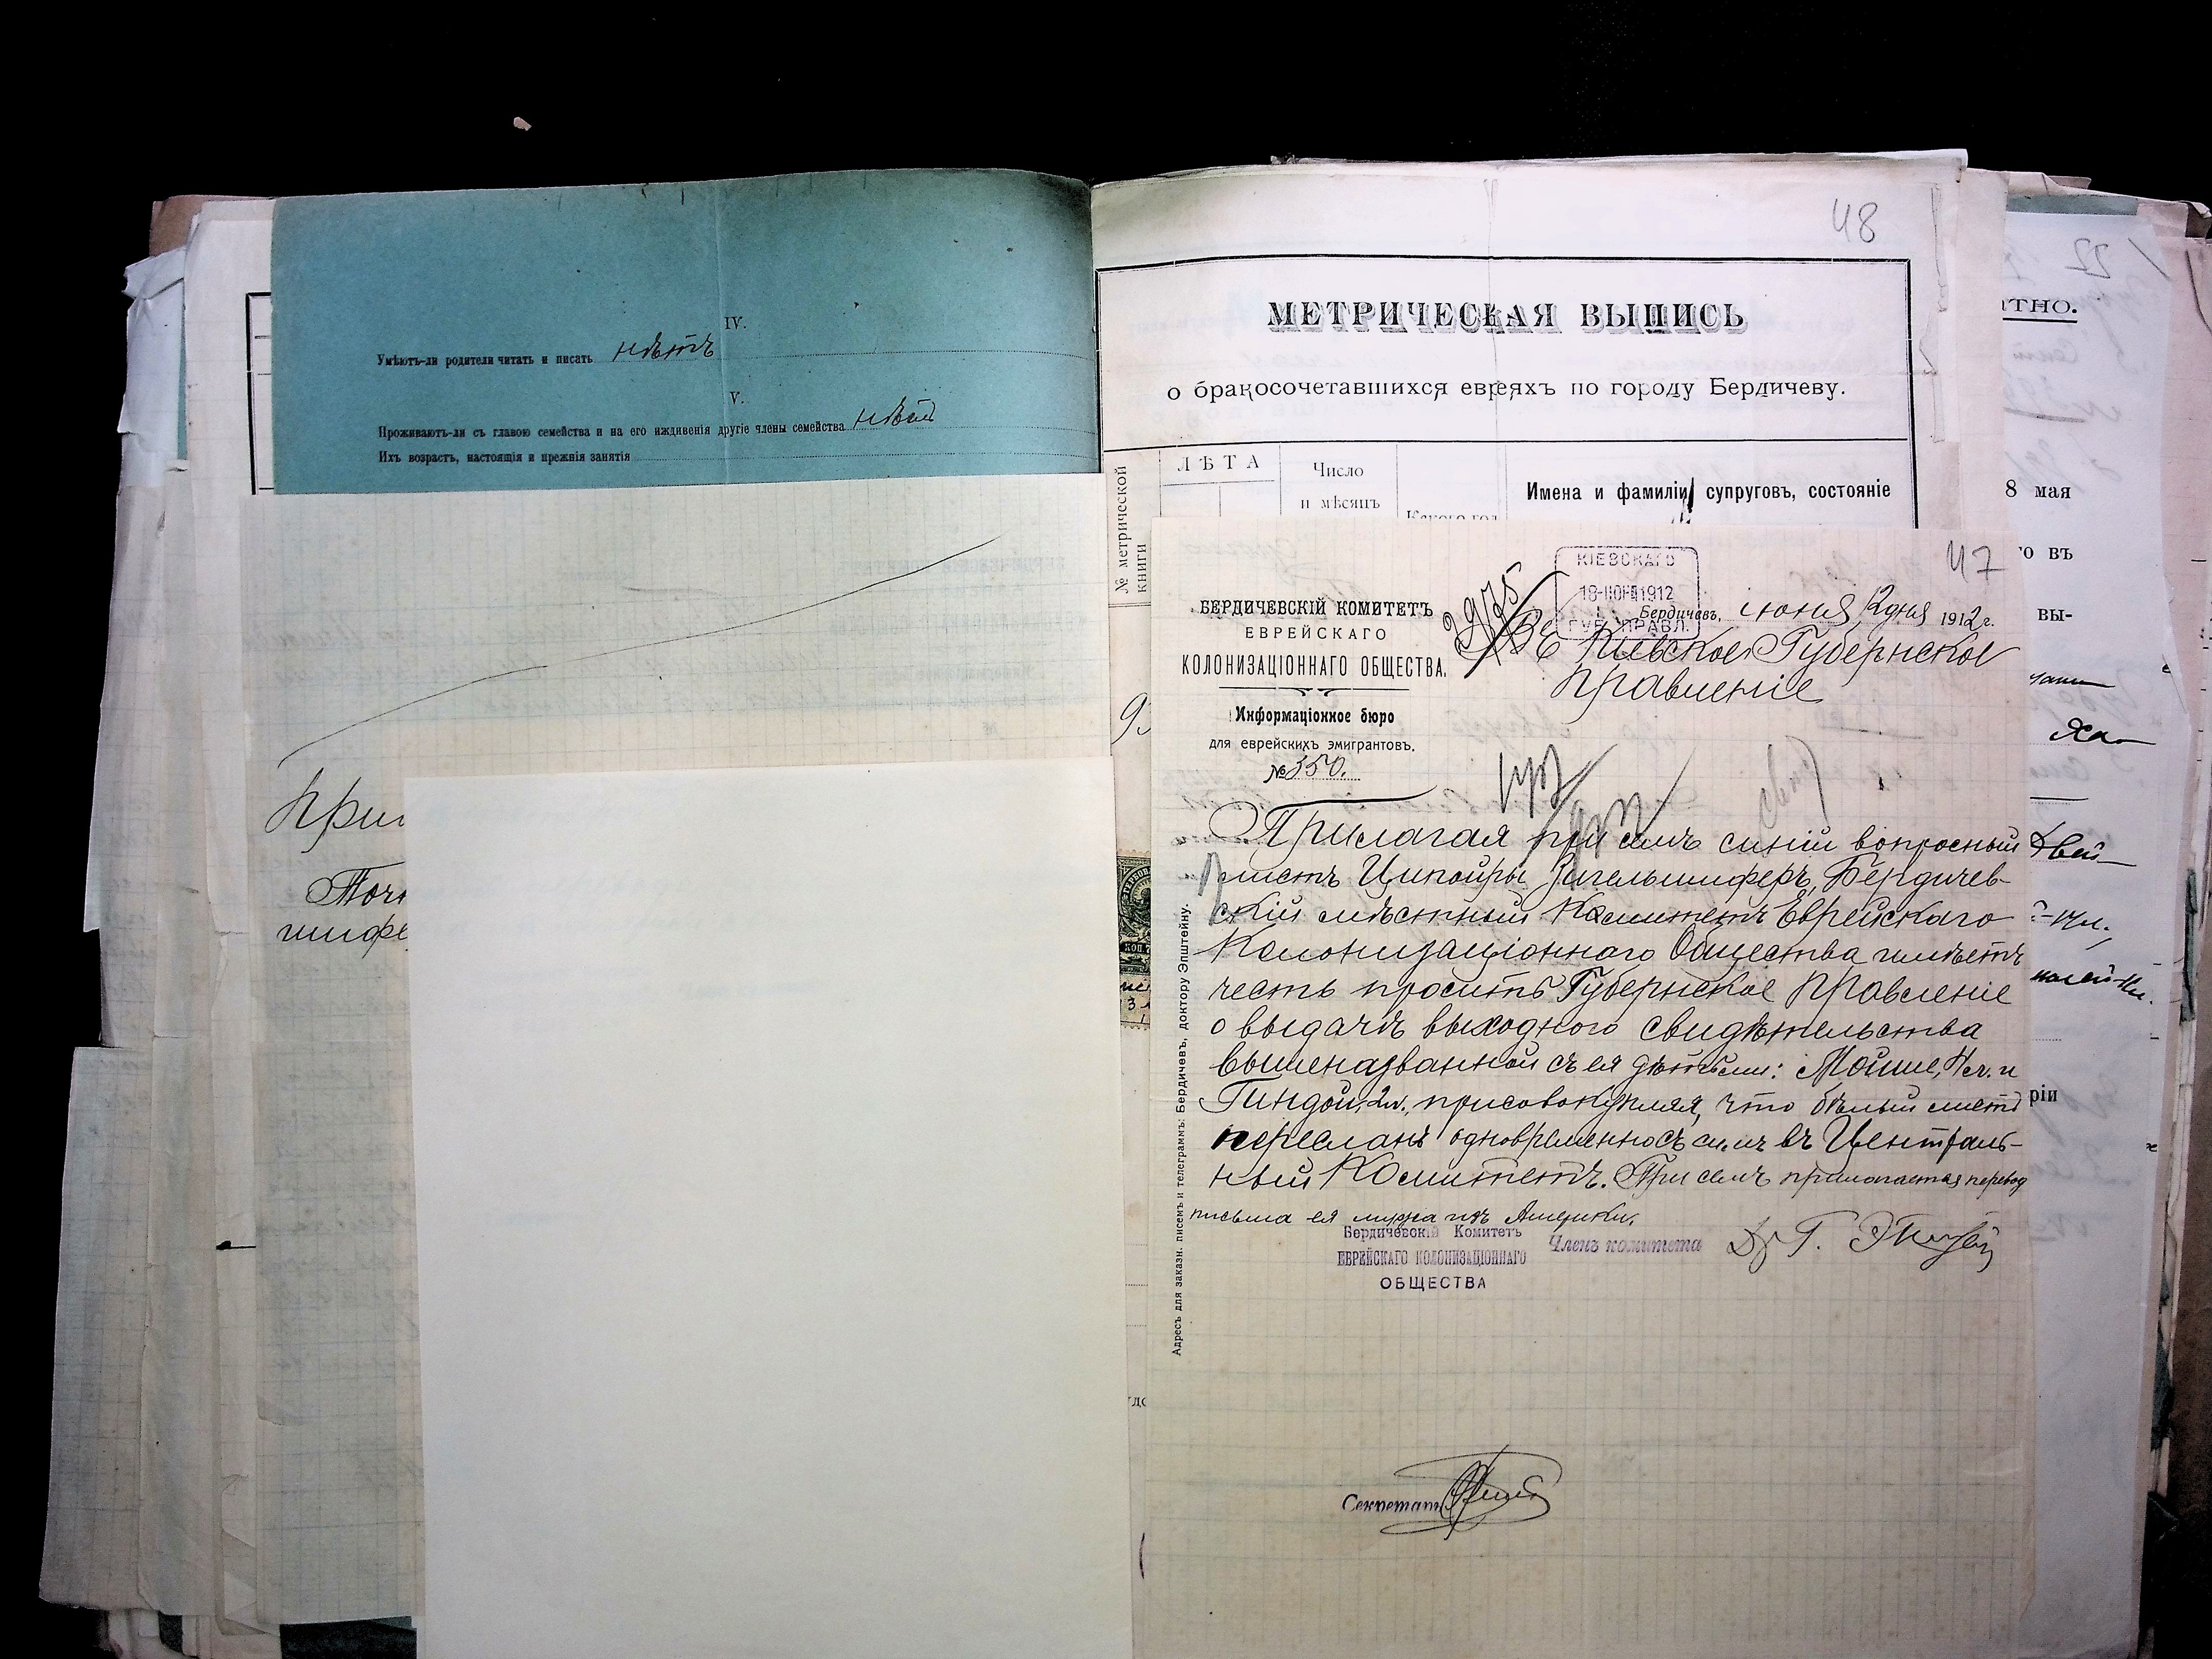 IV.
Умѣютъ-ли родители читать и писать нѣтъ
V.
Проживаютъ-ли съ главою семейства и на его иждивенія другіе члены семейства нѣтъ
Ихъ возрастъ, настоящія и прежнія занятія
При
Точ
шифе
48
МЕТРИЧЕСКАЯ ВЫПИСЬ
о бракосочетавшихся евреяхъ по городу Бердичеву.
№ метрической книги
ЛѢТА
Число
и мѣсяцъ
Имена и фамиліи супруговъ, состояніе
47
КІЕВСКАГО
18-ІЮНЯ1912
ГУБ. ПРАВЛ.
2975
БЕРДИЧЕВСКІЙ КОМИТЕТЪ
ЕВРЕЙСКАГО
КОЛОНИЗАЦІОННАГО ОБЩЕСТВА.
Информаціонное бюро
для еврейскихъ эмигрантовъ.
№ 350.
Бердичев, іюня 12 дня 1912 г.
Въ Кіевское Губернское
Правленіе
Прилагая при семъ синій вопросный
листъ Ципойры Зигельшиферъ, Бердичев-
скій мѣстный Комитетъ Еврейскаго
Колонизаціонного Общества имѣетъ
честь просить Губернское Правленіе
о выдачѣ выходного свидѣтельства
вышеназванной съ ея дѣтьми: Мойше, 4 л. и
Гиндой, 2 л., присовокупляя, что бѣлый листъ
пересланъ одновременно съ симъ въ Централь-
ный Комитетъ. При семъ прилагается перевод
письма ея мужа изъ Америки.
Бердичевскій Комитетъ
ЕВРЕЙСКАГО КОЛОНИЗАЦІОННАГО
ОБЩЕСТВА
Членъ комитета Др Г.
Секретарь
Адресъ для заказн. писемъ и телеграммъ: Бердичевъ, доктору Эпштейну.
22
ТНО.
8 мая
го въ
вы-
ріи